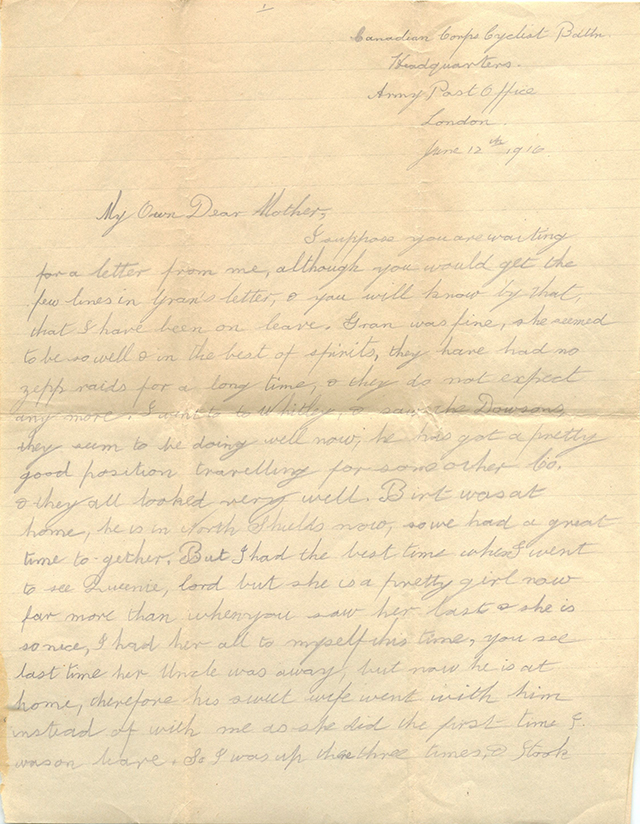 1
Canadian Corps Cyclist Batln.
Headquarters.
Army Post Office
London.
June 12th 1916
My Own Dear Mother,
I suppose you are waiting
for a letter from me, although you would get the
few lines in Gran's letter, & you will know by that,
that I have been on leave. Gran was fine, she seemed
to be so well & in the best of spirits, they have had no
zepp raids for a long time, & they do not expect
any more. I went to Whitley, & saw the Dowsons,
they seem to be doing well now, he has got a pretty
good position travelling for some other Co.
& they all looked very well. Birt was at
home, he is in North Shields now, so we had a great
time to-gether. But I had the best time when I went
to see lord but she is a pretty girl now
far more than when you saw her last & she is
so nice, I had her all to myself this time, you see
last time her Uncle was away, but now he is at
home, therefore his sweet wife went with him
instead of with me as she did the first time I
was on leave. So I was up there three times, & I took